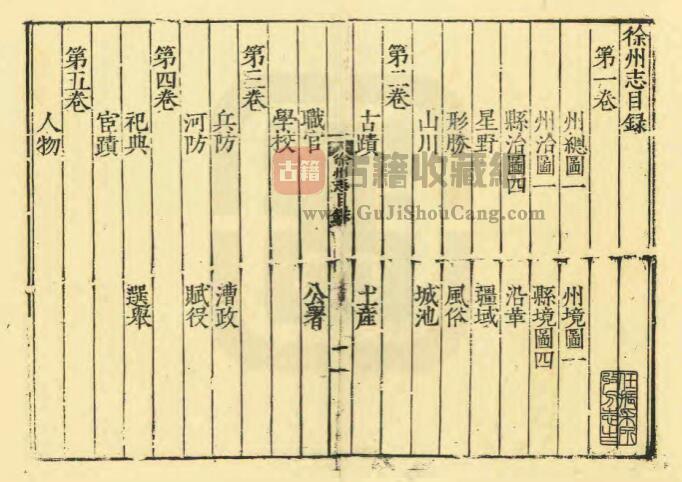 徐州志目録
第一卷
州總圖一 州境圖一
州治圖一 縣境圖四
縣治圖四 沿革
星野 疆域
形勝 風俗
山川 城池
第二卷
古蹟 土産
徐州志目録 一
職官 公署
學校
第三卷
兵防 漕政
河防 賦役
第四卷
祀典 選舉
宦蹟
第五卷
人物
古籍 古籍收藏
www.GuJiShouCang.com